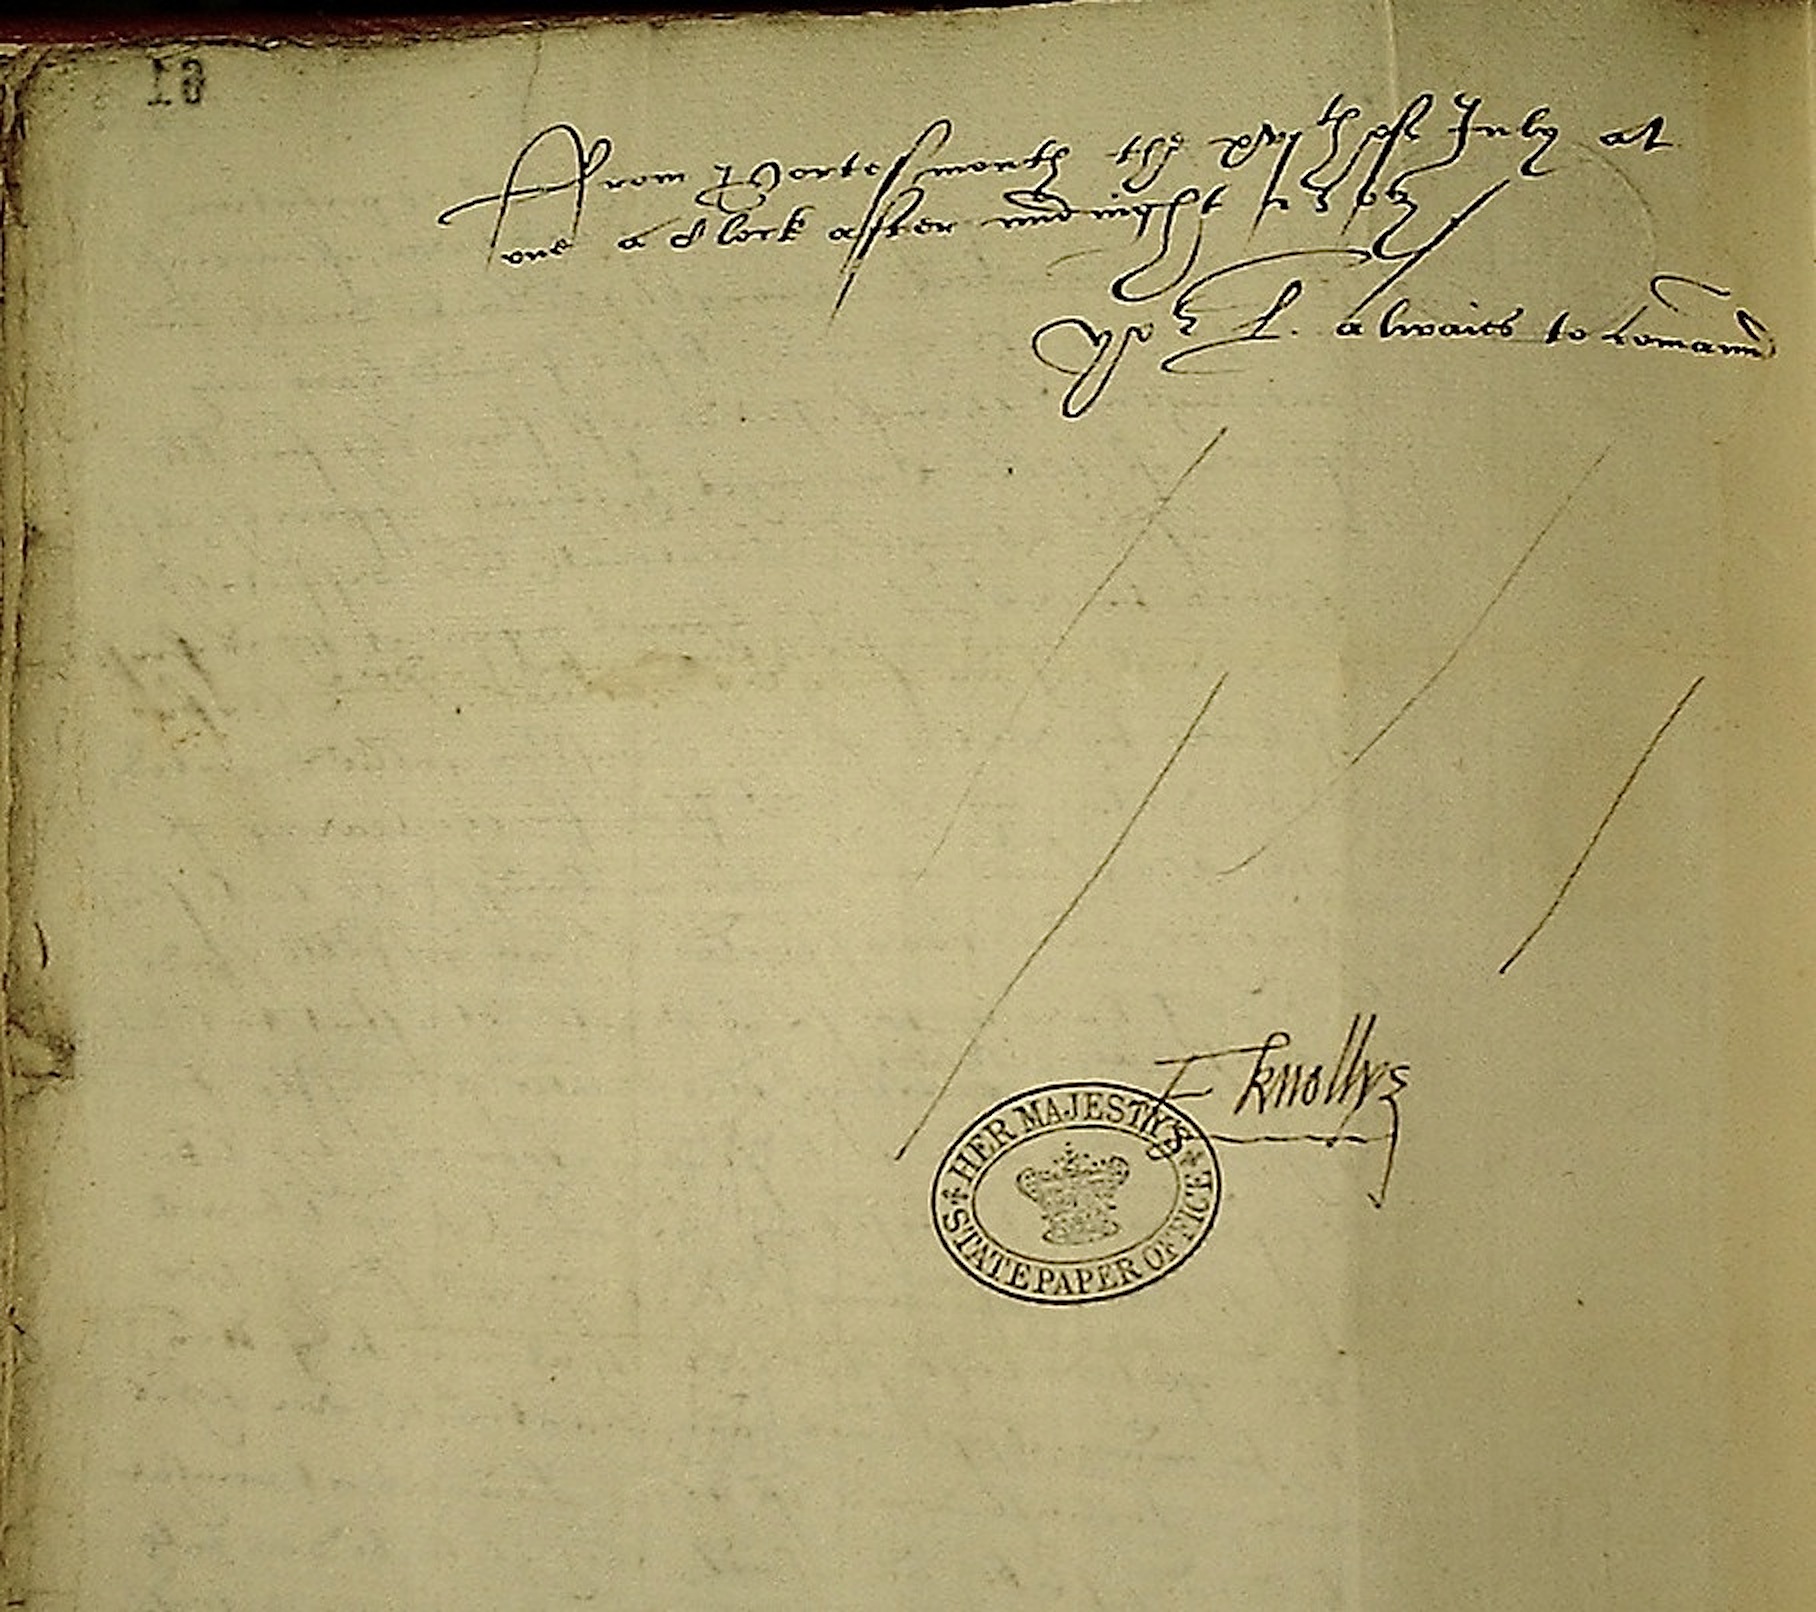 16
ffrom Portesmouth the xvjth of July at
one a Clock after midnight 1563
yor L. alwaies to comaund
F knollys
HER MAJESTY'S STATE PAPER OFFICE